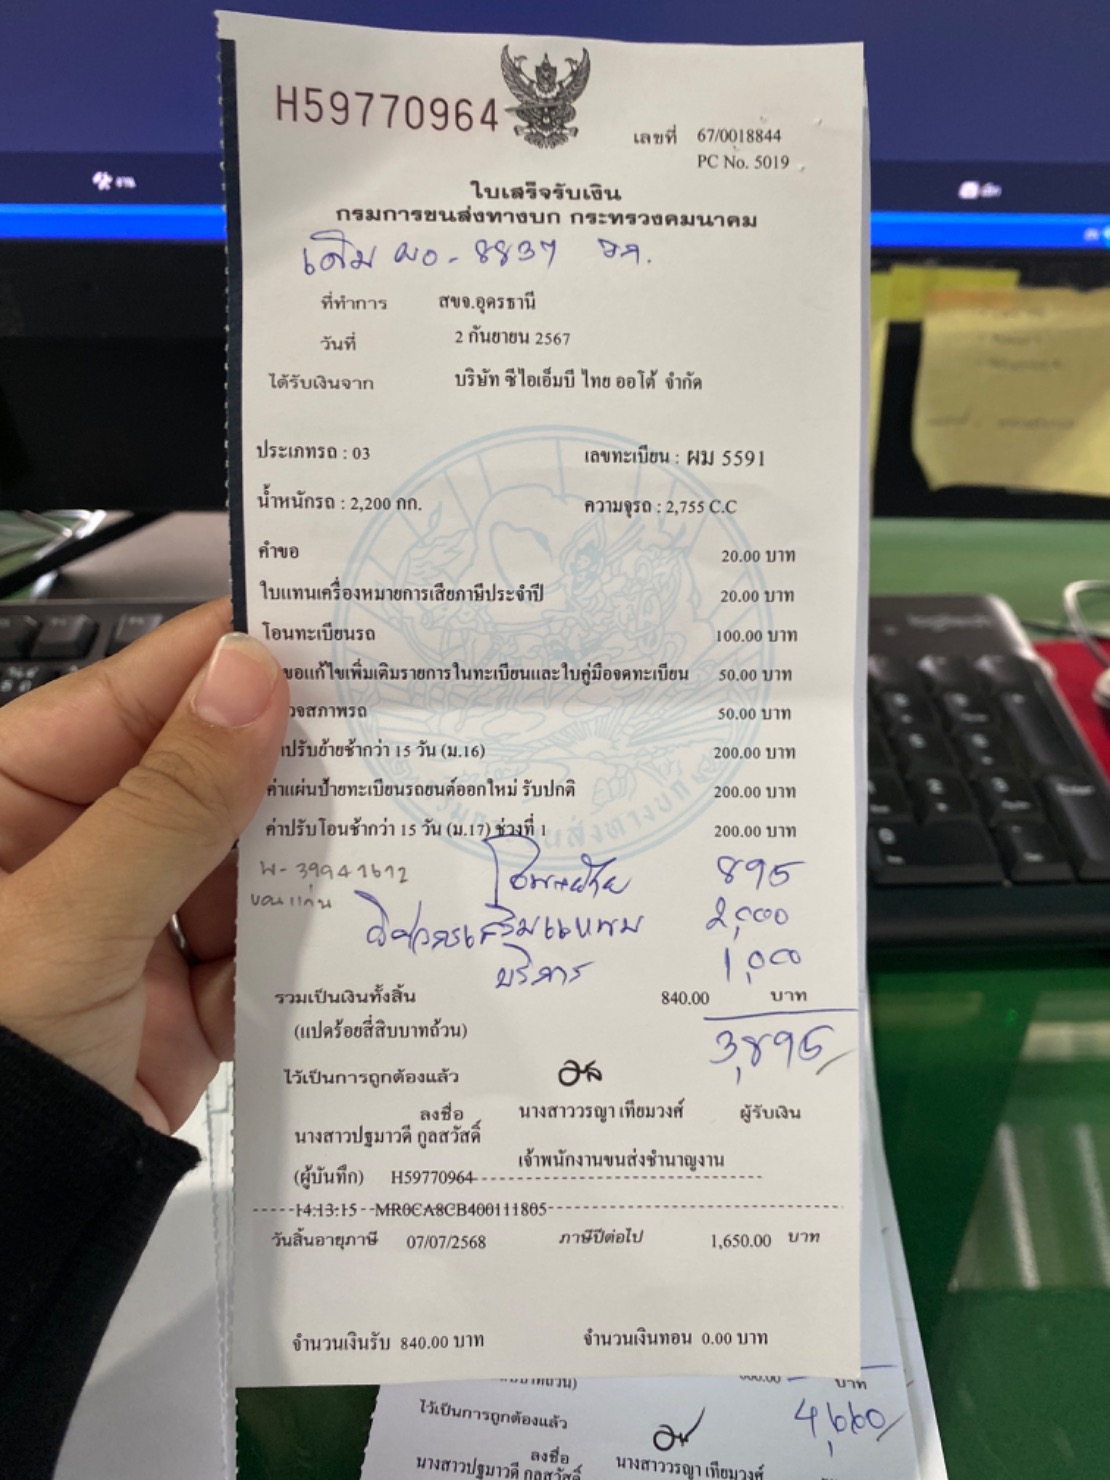 H59770964
เลขที่ 67/0018844
PC No. 5019
ใบเสร็จรับเงิน
กรมการขนส่งทางบก กระทรวงคมนาคม
เดิม ผอ - 8837 อด.
ที่ทำการ สขจ.อุดรธานี
วันที่ 2 กันยายน 2567
ได้รับเงินจาก บริษัท ซีไอเอ็มบี ไทย ออโต้ จำกัด
ประเภทรถ : 03 เลขทะเบียน : ผม 5591
น้ำหนักรถ : 2,200 กก. ความจุรถ : 2,755 C.C
คำขอ 20.00 บาท
ใบแทนเครื่องหมายการเสียภาษีประจำปี 20.00 บาท
โอนทะเบียนรถ 100.00 บาท
ขอแก้ไขเพิ่มเติมรายการในทะเบียนและใบคู่มือจดทะเบียน 50.00 บาท
วจสภาพรถ 50.00 บาท
าปรับย้ายช้ากว่า 15 วัน (ม.16) 200.00 บาท
ค่าแผ่นป้ายทะเบียนรถยนต์ออกใหม่ รับปกติ 200.00 บาท
ค่าปรับโอนช้ากว่า 15 วัน (ม.17) ช่วงที่ 1 200.00 บาท
พ-39941612 895
ขอนแก่น 2,000
บริการ 1,000
รวมเป็นเงินทั้งสิ้น 840.00 บาท
(แปดร้อยสี่สิบบาทถ้วน) 3,895
ไว้เป็นการถูกต้องแล้ว
ลงชื่อ นางสาววรญา เทียมวงศ์ ผู้รับเงิน
นางสาวปฐมาวดี กูลสวัสดิ์
เจ้าพนักงานขนส่งชำนาญงาน
(ผู้บันทึก) H59770964
14:13:15 MR0CA8CB400111805
วันสิ้นอายุภาษี 07/07/2568 ภาษีปีต่อไป 1,650.00 บาท
จำนวนเงินรับ 840.00 บาท จำนวนเงินทอน 0.00 บาท
บาท
ไว้เป็นการถูกต้องแล้ว 4,660
ลงชื่อ นางสาววรญา เทียมวงศ์
นางสาวปฐมาวดี กูลสวัสดิ์
logitech